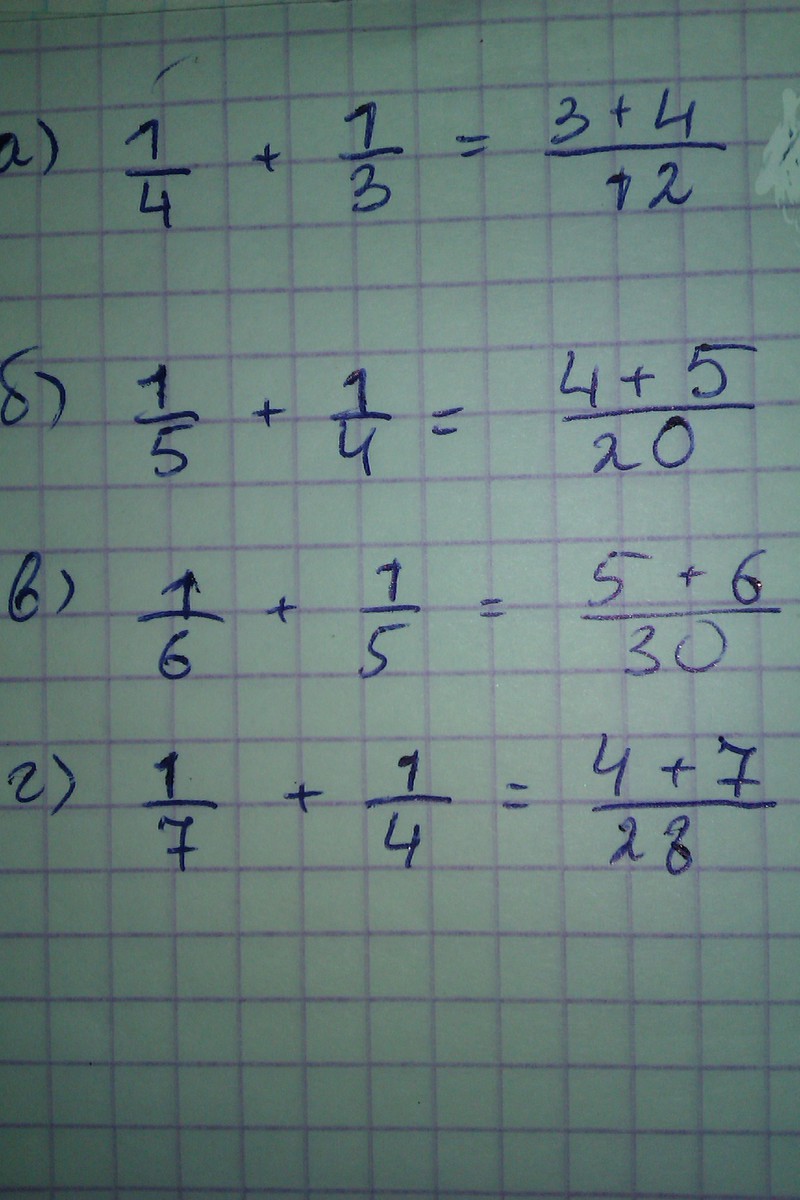 а) 1/4 + 1/3 = 3+4/12
б) 1/5 + 1/4 = 4+5/20
в) 1/6 + 1/5 = 5+6/30
г) 1/7 + 1/4 = 4+7/28